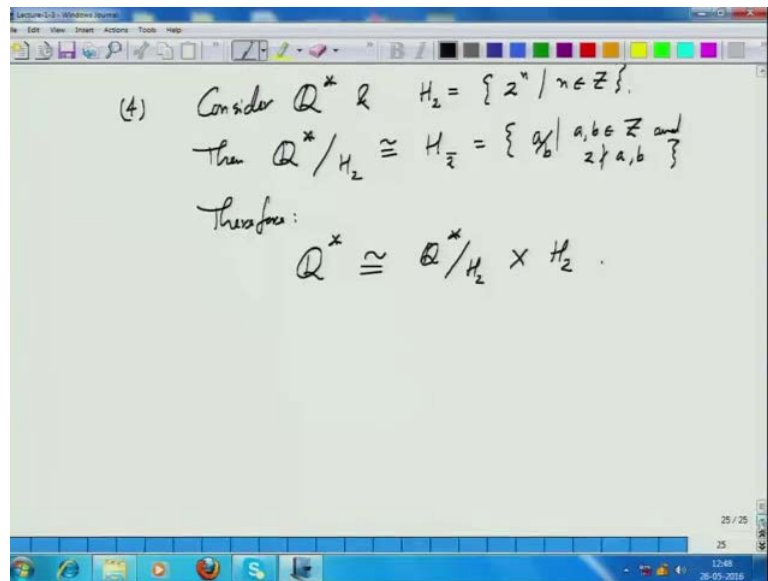 Lecture-1-3 - Windows Journal
File Edit View Insert Actions Tools Help
(4) Consider Q* & H₂ = { 2ⁿ | n ∈ Z }.
Then Q*/H₂ ≅ H_2̄ = { a/b | a, b ∈ Z and
2 ∤ a, b }
Therefore:
Q* ≅ Q*/H₂ × H₂ .
25 / 25
25
12:48
26-05-2016